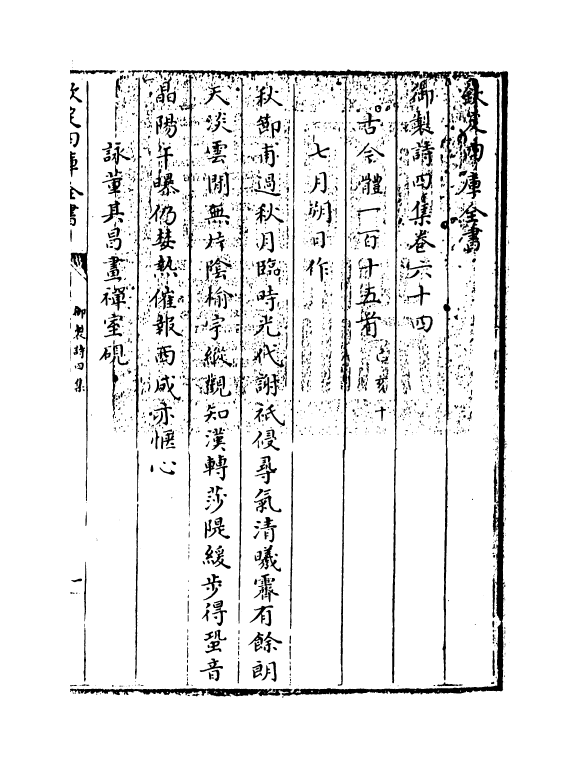 欽定四庫全書
御製詩四集卷六十四
古今體一百十五首
七月朔日作
秋節甫過秋月臨時光代謝祗侵尋氣清曦霽有餘朗
天淡雲閒無片陰榆宇縱觀知漢轉莎隄緩步得蛩音
晶陽午曝仍甤熱催報西成亦愜心
詠董其昌畫禪室硯
欽定四庫全書
御製詩四集
一